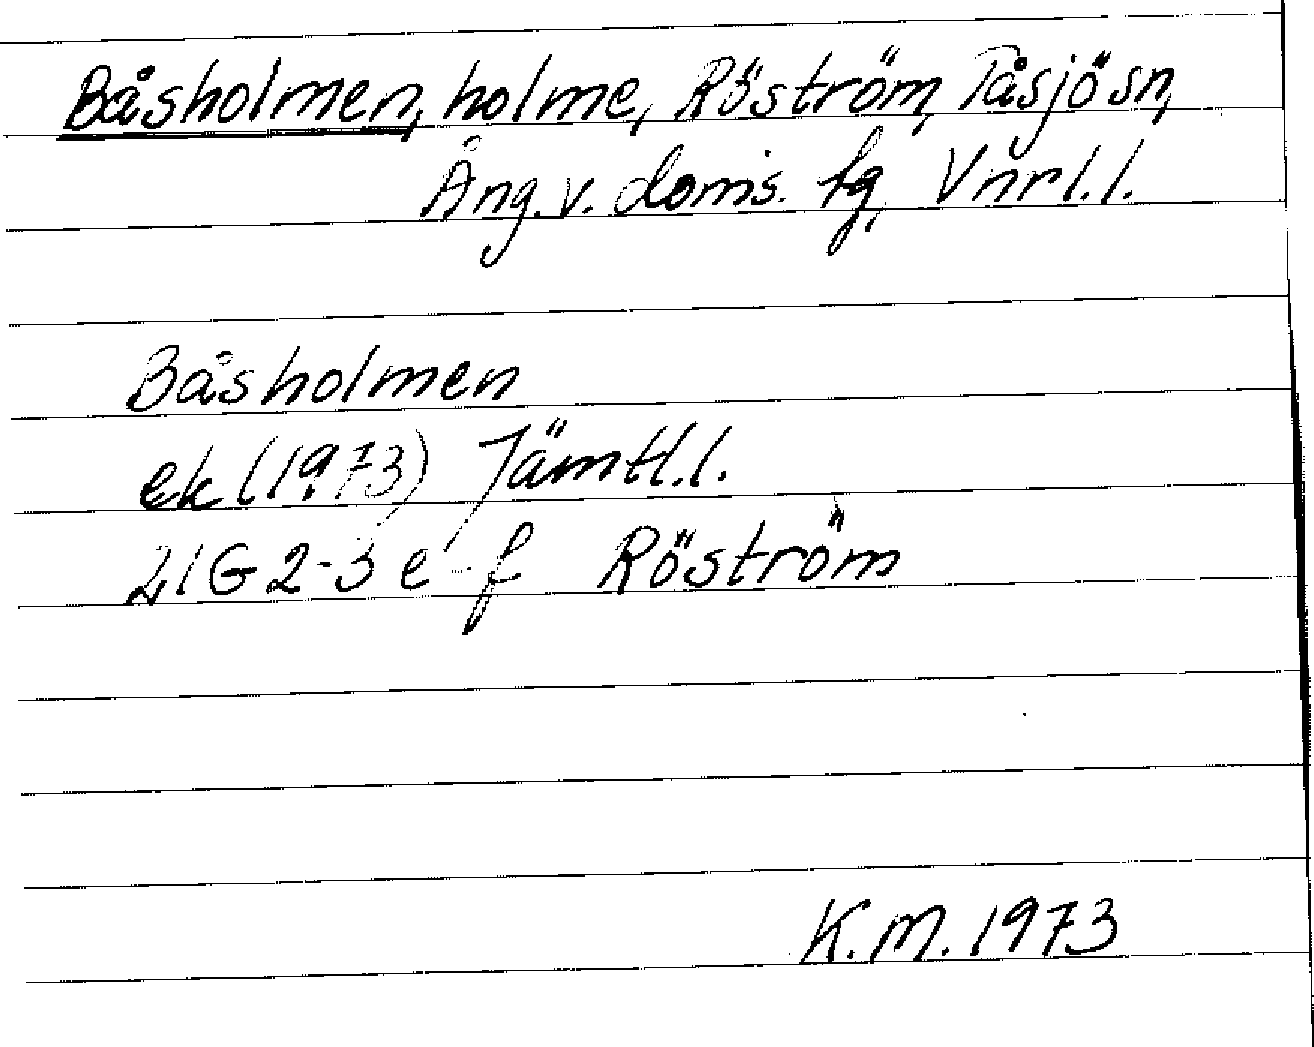 Båsholmen, holme, Röström, Tåsjö sn,
Ång. v. doms. fg, Vnrl. l.
Båsholmen
ek (1973) Jämtl. l.
21G 2-3 e-f Röström
K.M. 1973